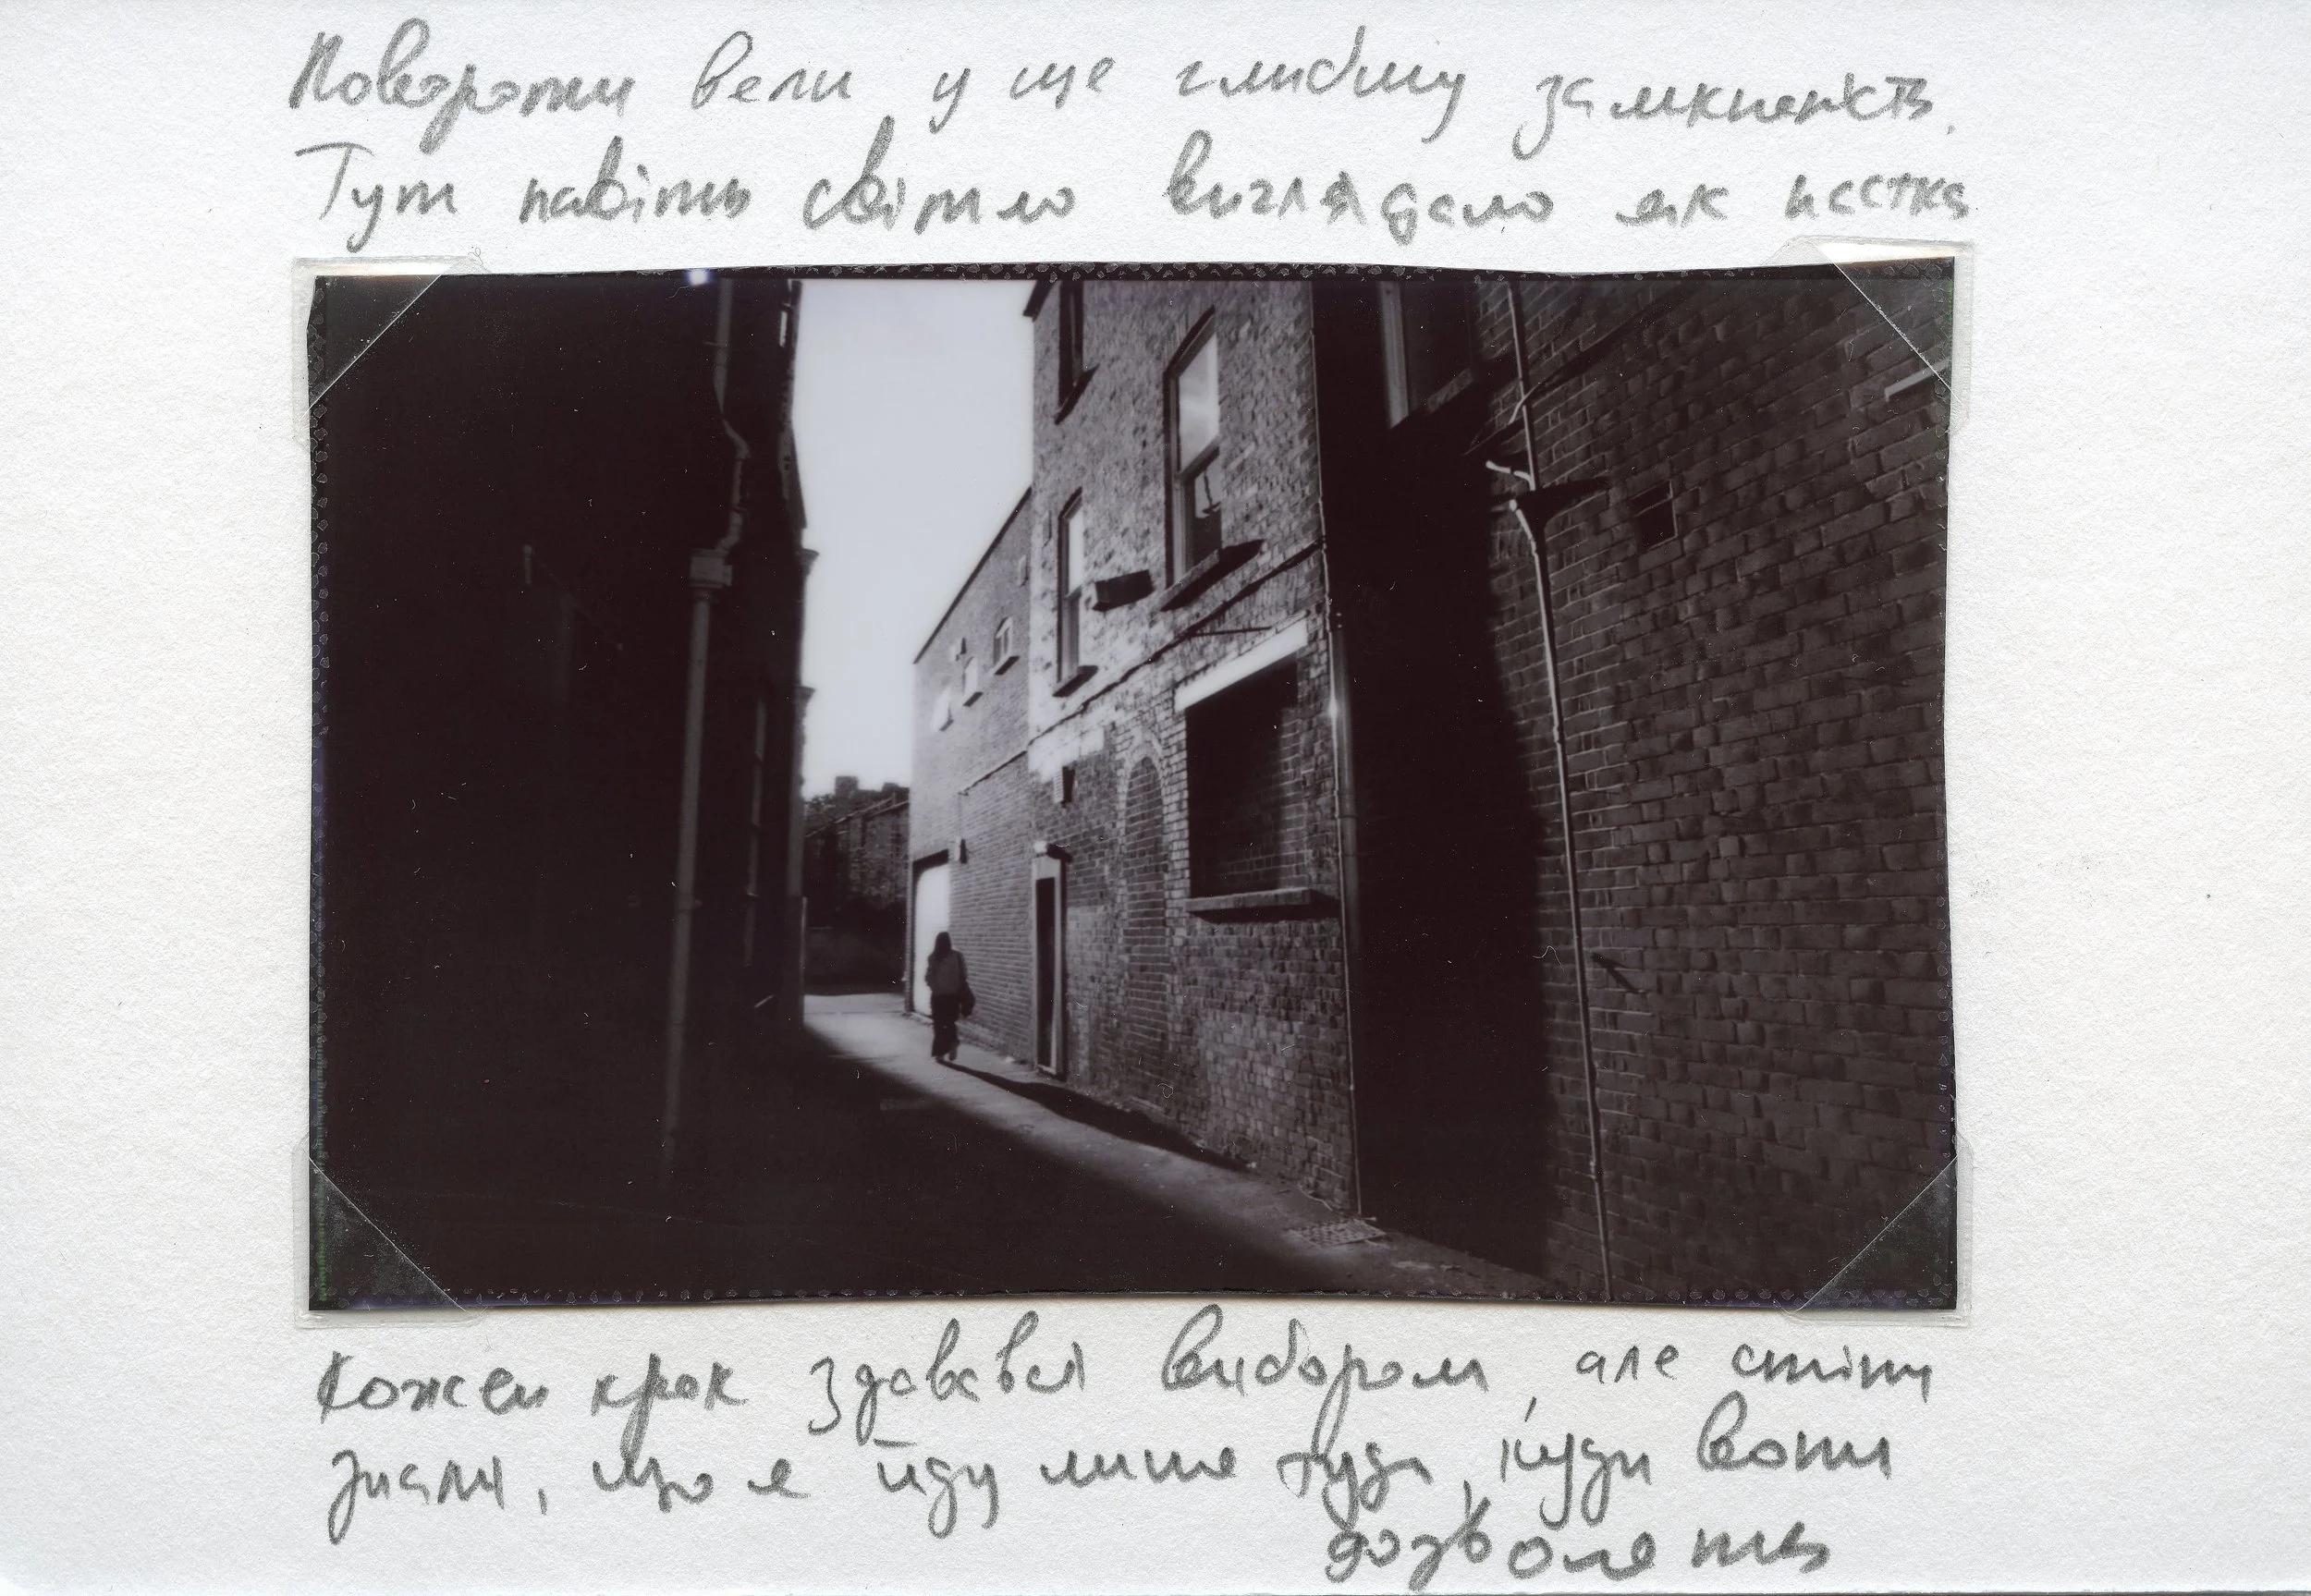 Повороти вели у ще глибшу замкненість.
Тут навіть світло виглядало як пастка
Кожен крок здавався вибором, але стіни
знали, що я йду лише туди, куди вони
дозволять